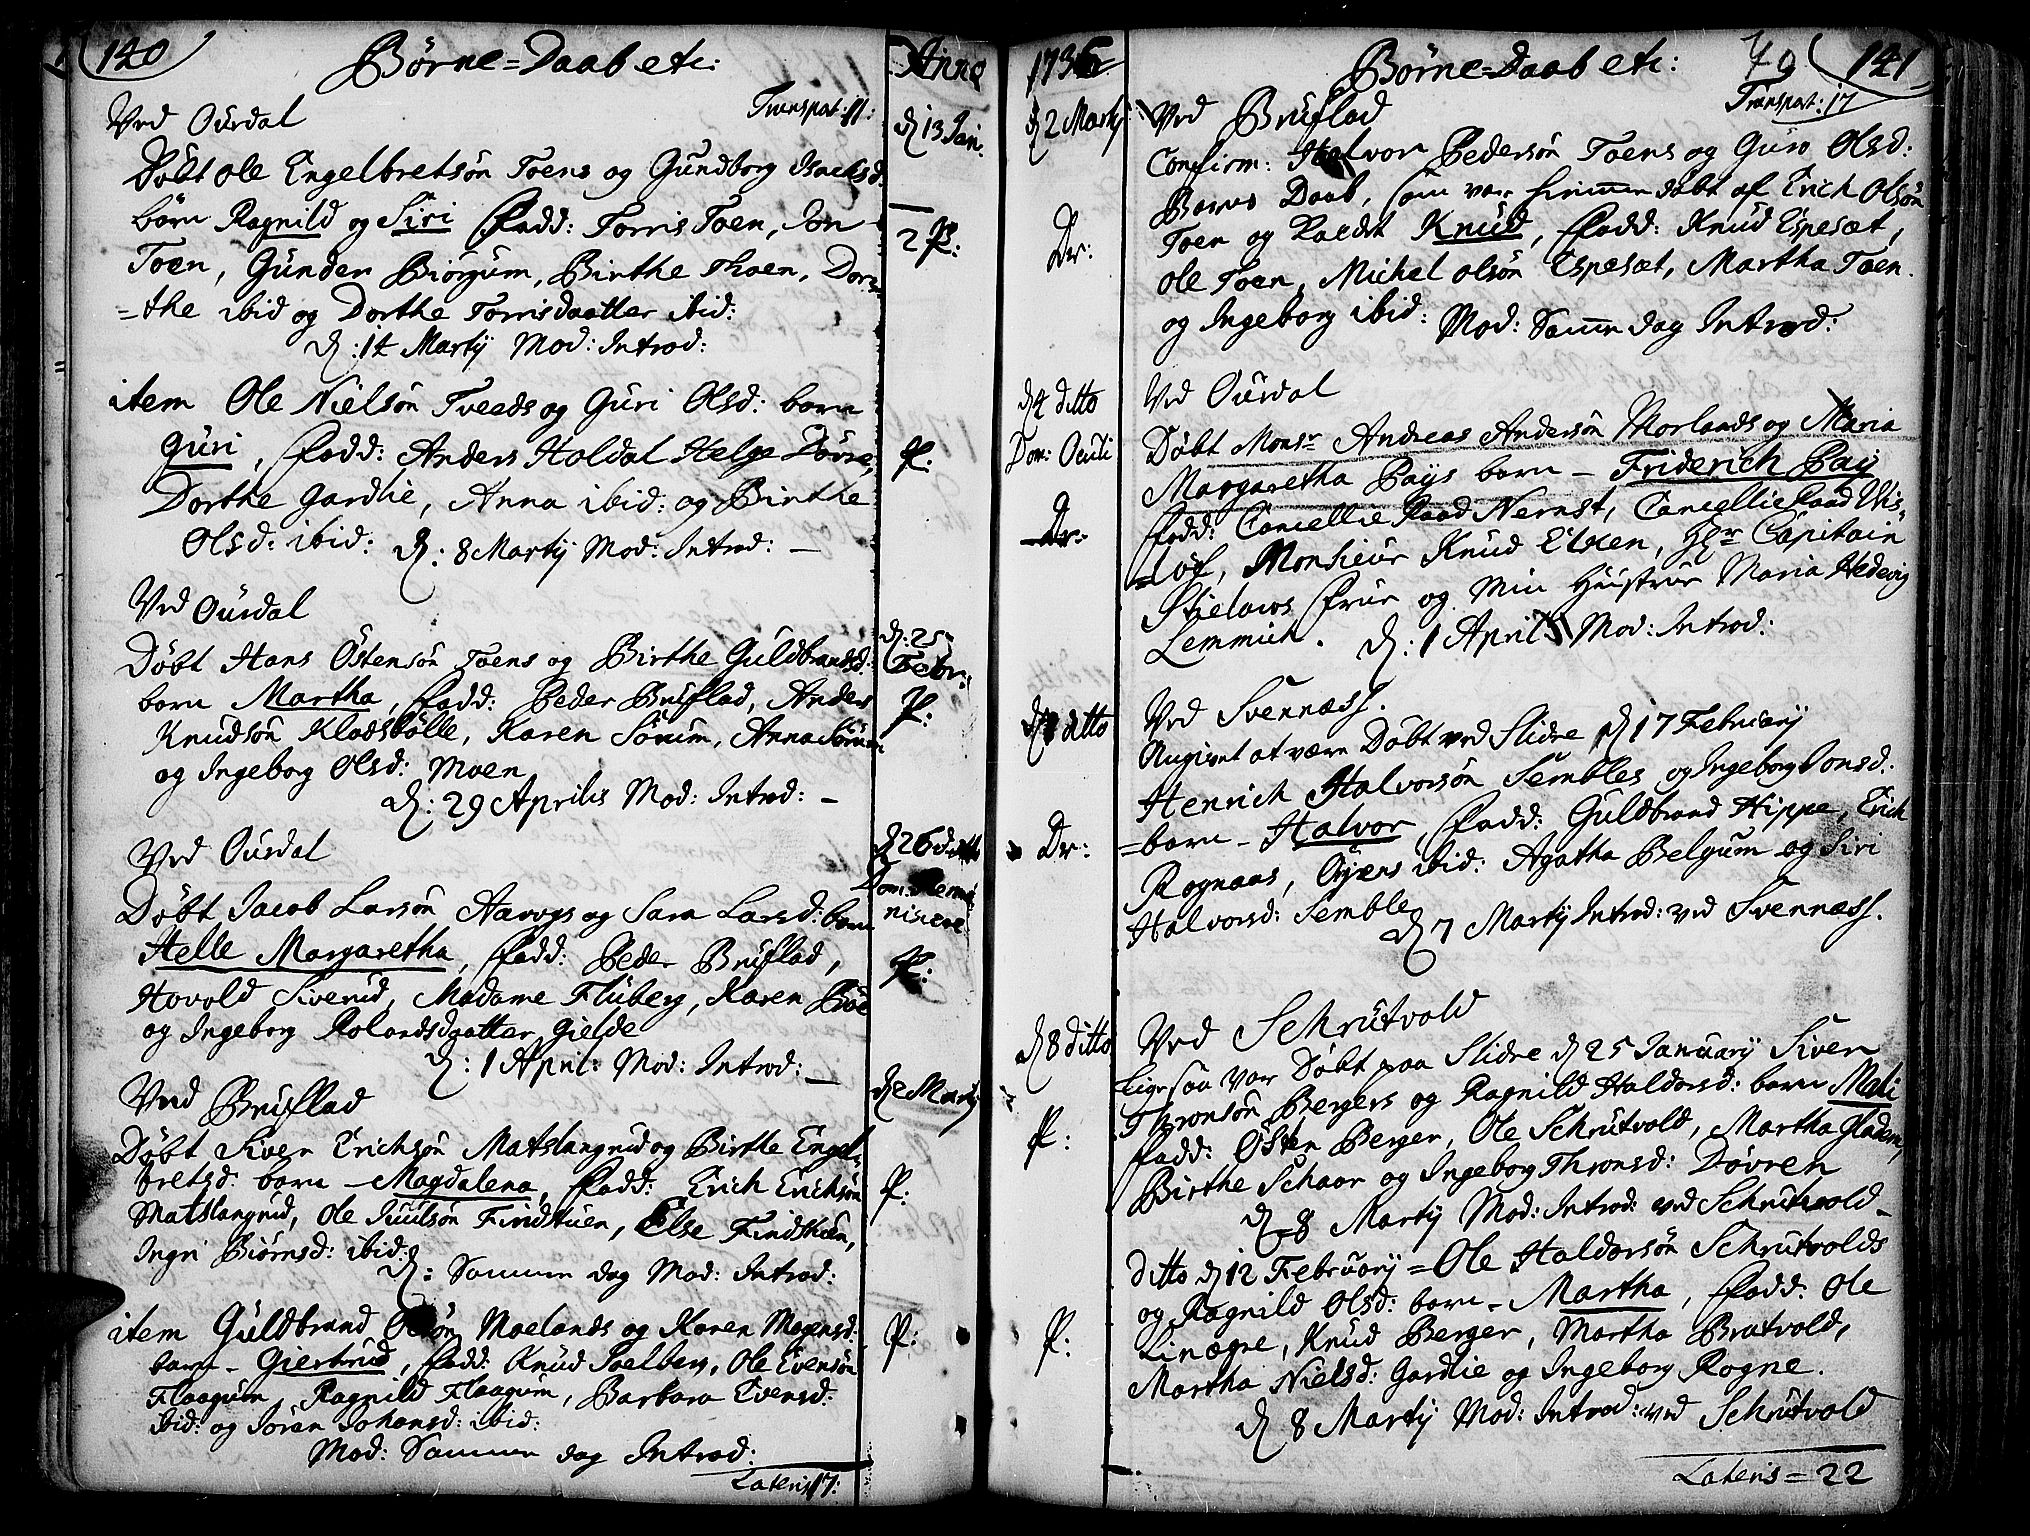 140 Børne=Daab etc: Anno
Transpat: 11:
Ved Ourdal
d 13 Jan:
Døbt Ole Engelbretsøn Toens og Gundborg Isachsd:
børn Ragnild og Siri Fadd: Torris Toen, Jon
2 P:
Toen, Gunder Biørgum, Birthe Thoen, Dor=
=the ibid og Dorthe Torrisdaatter ibid:
d: 14 Martij Mod: Introd:
item Ole Nielsøn Tveeds og Guri Olsd: barn
Guri, Fadd: Anders Holdal Helge Døvre,
P:
Dorthe Gardlie, Anna ibid: og Birthe
Olsd: ibid: d: 8 Martij Mod: Introd: —
Ved Ourdal
d: 25 Febr:
Døbt Hans Østensøn Toens og Birthe Guldbrandsd:
barn Martha, Fadd: Peder Bruflad, Anders
P:
Knudsøn Kladsbølle, Karen Sørum, Anna Sørum
og Ingeborg Olsd: Moen
d: 29 Aprilis Mod: Introd: —
Ved Ourdal
d 26 ditto
Dom: Remi
niscere
Døbt Jacob Larsøn Aavogs og Sara Larsd: barn
Helle Margaretha, Fadd: Peder Bruflad,
P:
Hovold Siverud, Madame Fluberg, Karen Bøe
og Ingeborg Rolandsdaatter Gielde
d: 1 April: Mod: Introd: —
Ved Bruflad
d 2 Martij
Døbt Siver Erichsøn Matslangrud og Birthe Engel=
bretsd: barn – Magdalena, Fadd: Erich Erichsøn
P:
Matslangrud, Ole Juulsøn Findstuen, Else Findstuen,
Ingri Biørnsd: ibid:
d: Samme dag Mod: Introd:
item Guldbrand Olsøn Moelands og Karen Mogensd:
P:
barn – Giertrud, Fadd: Knud Soelberg, Ole Evensøn
Flaagum, Ragnild Flaagum, Barbara Evensd:
ibid: og Søren Johansd: ibid:
Mod: Samme dag Introd:
Lateris 17:
1736 Børne=Daab etc: 70 141
Transpat: 17
d 2 Martij
Ved Bruflad
Confirm: Halvor Pedersøn Toens og Guro Olsd:
Barns Daab, som var hiemmedøbt af Erich Olsøn
Dr:
Toen og kaldt Knud, Fadd: Knud Espesæt,
Ole Toen, Michel Olsøn Espesæt, Martha Toen
og Ingeborg ibid: Mod: Samme dag Introd:
d 4 ditto
Dom: Oculi
Ved Ourdal
Døbt Monsr Andreas Andersøn Morlands og Maria
Margaretha Pays barn – Friderich Pay
Dr:
Fadd: Cancellie Raad Nernst, Cancellie Raad Wis=
=løf, Monsieur Knud Elken, Hr Capitain
Stielows Frue og Min Hustrue Maria Hedevig
Lemmich. d: 1 April Mod: Introd:
d 7 ditto
Ved Svennæss.
Angivet at være Døbt ved Slidre d 17 February
Henrich Halvorsøn Sembles og Ingeborg Jonsd:
Dr:
=barn – Halvor, Fadd: Guldbrand Hippe, Erich
Rognaas, ibid: Agatha Belgum og Siri
Halvorsd: Semble
d 7 Martij Introd: ved Svennæss.
d 8 ditto
Ved Schrutvold
Ligesaa var Døbt paa Slidre d 25 January Siver
Thronsøn Bergers og Ragnild Haldorsd: barn Mali
P:
Fadd: Østen Berger, Ole Schrutvold, Martha Gladem,
Birthe Schaar og Ingeborg Thronsd: Døvren
d 8 Martij Mod: Introd: ved Schrutvold –
ditto d 12 February = Ole Haldorsøn Schrutvolds
og Ragnild Olsd: barn – Martha, Fadd: Ole
P:
Linægre, Knud Berger, Martha Bratvold,
Martha Nielsd: Gardlie og Ingeborg Rogne.
d 8 Martij Mod: Introd: ved Schrutvold
Lateris = 22